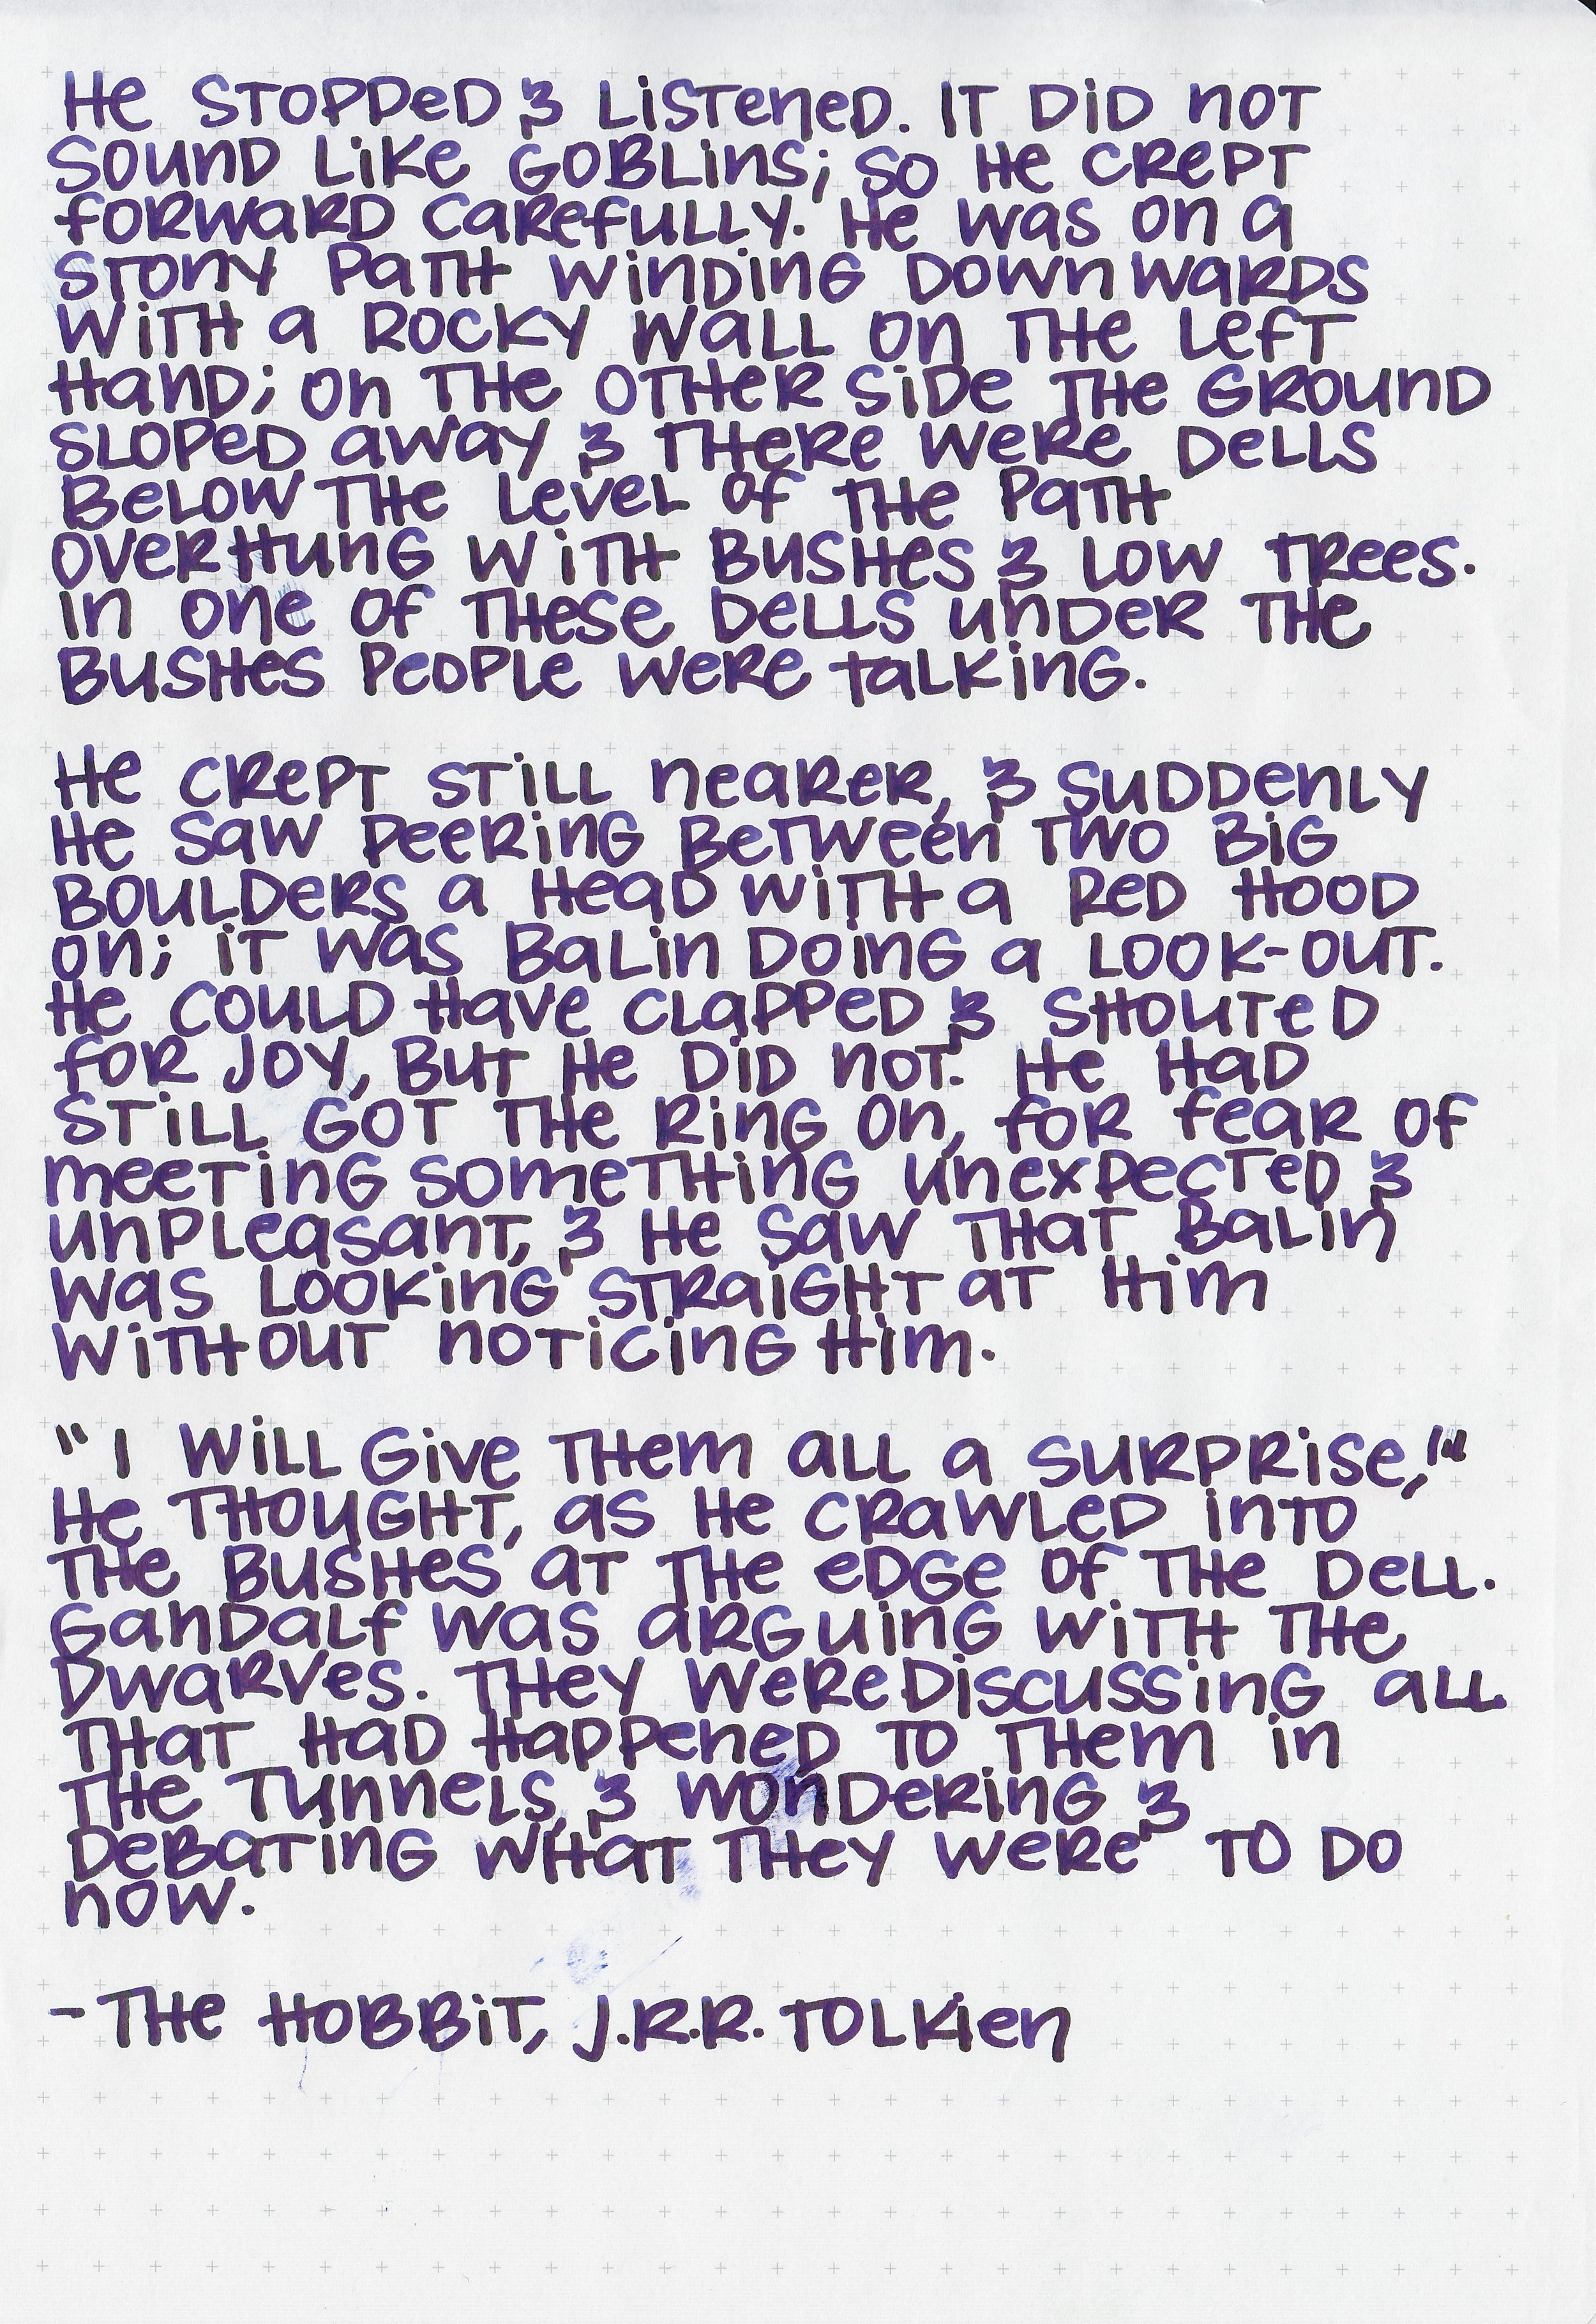 He stopped & listened. It did not
sound like goblins; so he crept
forward carefully. He was on a
stony path winding downwards
with a rocky wall on the left
hand; on the other side the ground
sloped away & there were dells
below the level of the path
overhung with bushes & low trees.
In one of these dells under the
bushes people were talking.
He crept still nearer, & suddenly
he saw peering between two big
boulders a head with a red hood
on; it was Balin doing a look-out.
He could have clapped & shouted
for joy, but he did not. He had
still got the ring on, for fear of
meeting something unexpected &
unpleasant, & he saw that Balin
was looking straight at him
without noticing him.
"I will give them all a surprise,"
he thought, as he crawled into
the bushes at the edge of the dell.
Gandalf was arguing with the
dwarves. They were discussing all
that had happened to them in
the tunnels, & wondering &
debating what they were to do
now.
-The Hobbit, J.R.R. Tolkien